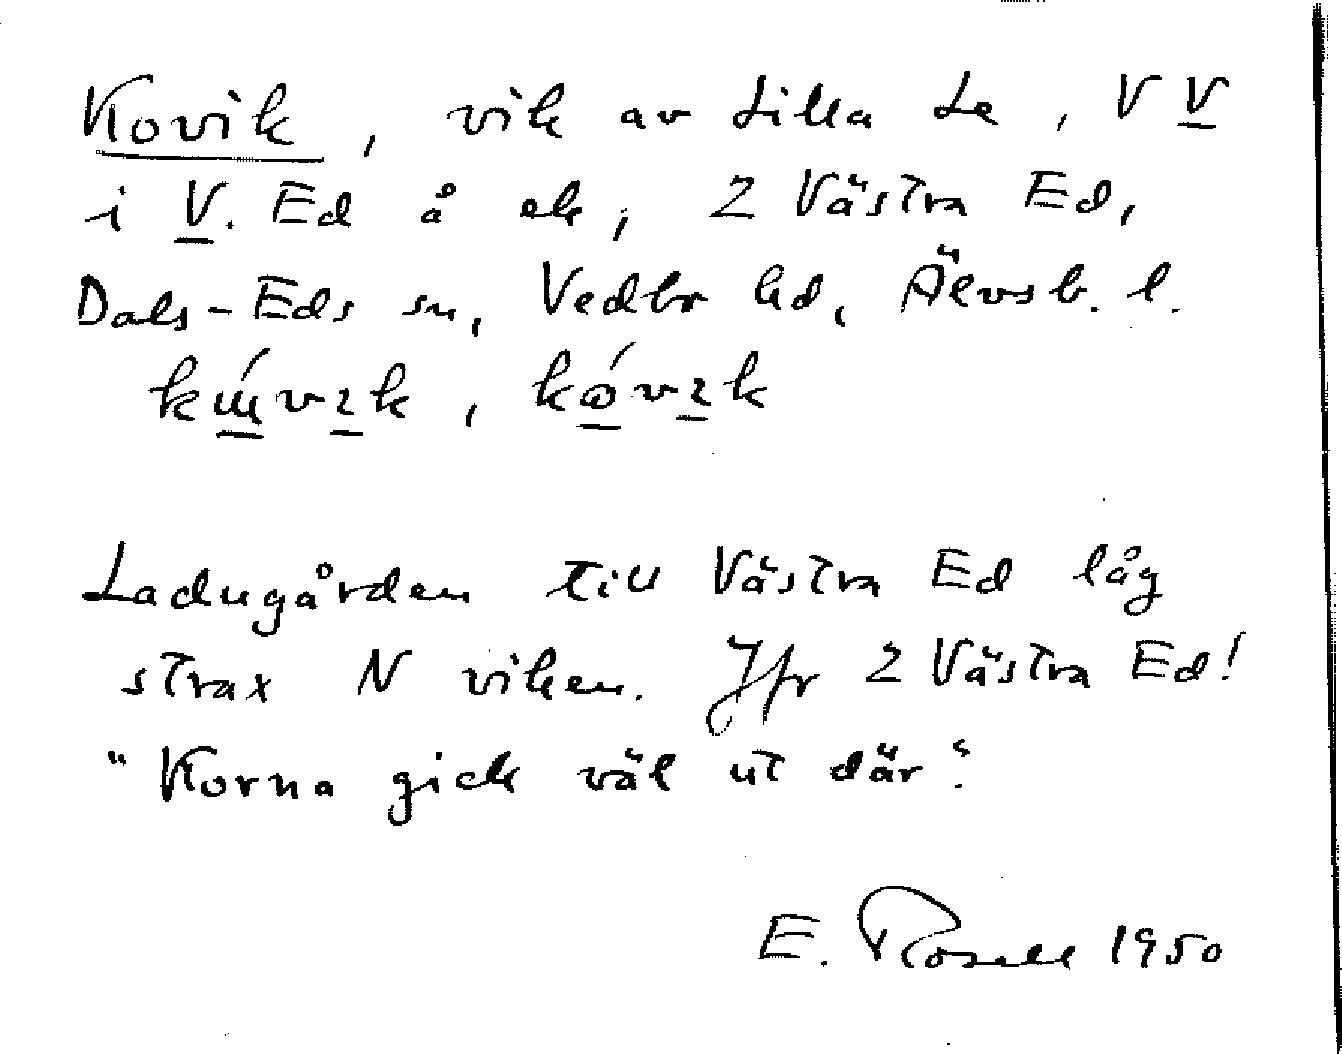 Kovik, vik av Lilla Le, V V
i V. Ed å ek, 2 Västra Ed,
Dals-Eds sn, Vedbo hd, Älvsb. l.
Ladugården till Västra Ed låg
strax N viken. Jfr 2 Västra Ed!
"Korna gick väl ut där".
E. Rosell 1950